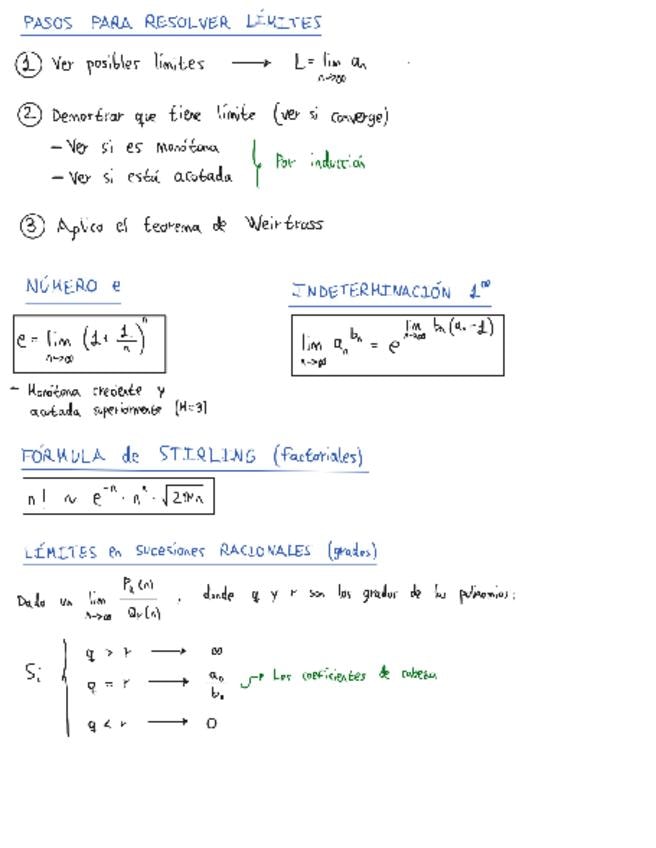 PASOS PARA RESOLVER LÍMITES
① Ver posibles límites ⟶ L = lim aₙ
n→∞
② Demostrar que tiene límite (ver si converge)
- Ver si es monótona
- Ver si está acotada
Por inducción
③ Aplico el teorema de Weirtrass
NÚMERO e
INDETERMINACIÓN 1^∞
e = lim (1 + 1/n)^n
n→∞
lim aₙ^bₙ = e^(lim bₙ(aₙ - 1))
n→∞
- Monótona creciente y
acotada superiormente [M=3]
FÓRMULA de STIRLING (factoriales)
n! ~ e^-n · n^n · √2πn
LÍMITES en sucesiones RACIONALES (grados)
Dado un lim P_q(n) / Q_r(n), donde q y r son los grados de los polinomios:
n→∞
Si
q > r ⟶ ∞
q = r ⟶ a₀/b₀ → Los coeficientes de cabeza
q < r ⟶ 0